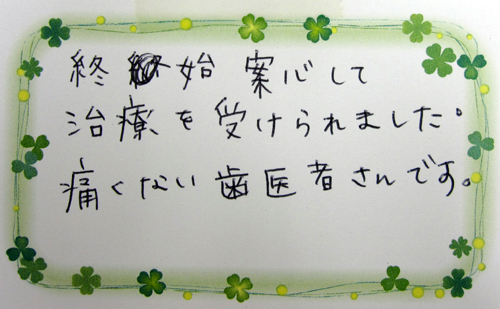 終始 案心して
治療を受けられました。
痛くない歯医者さんです。